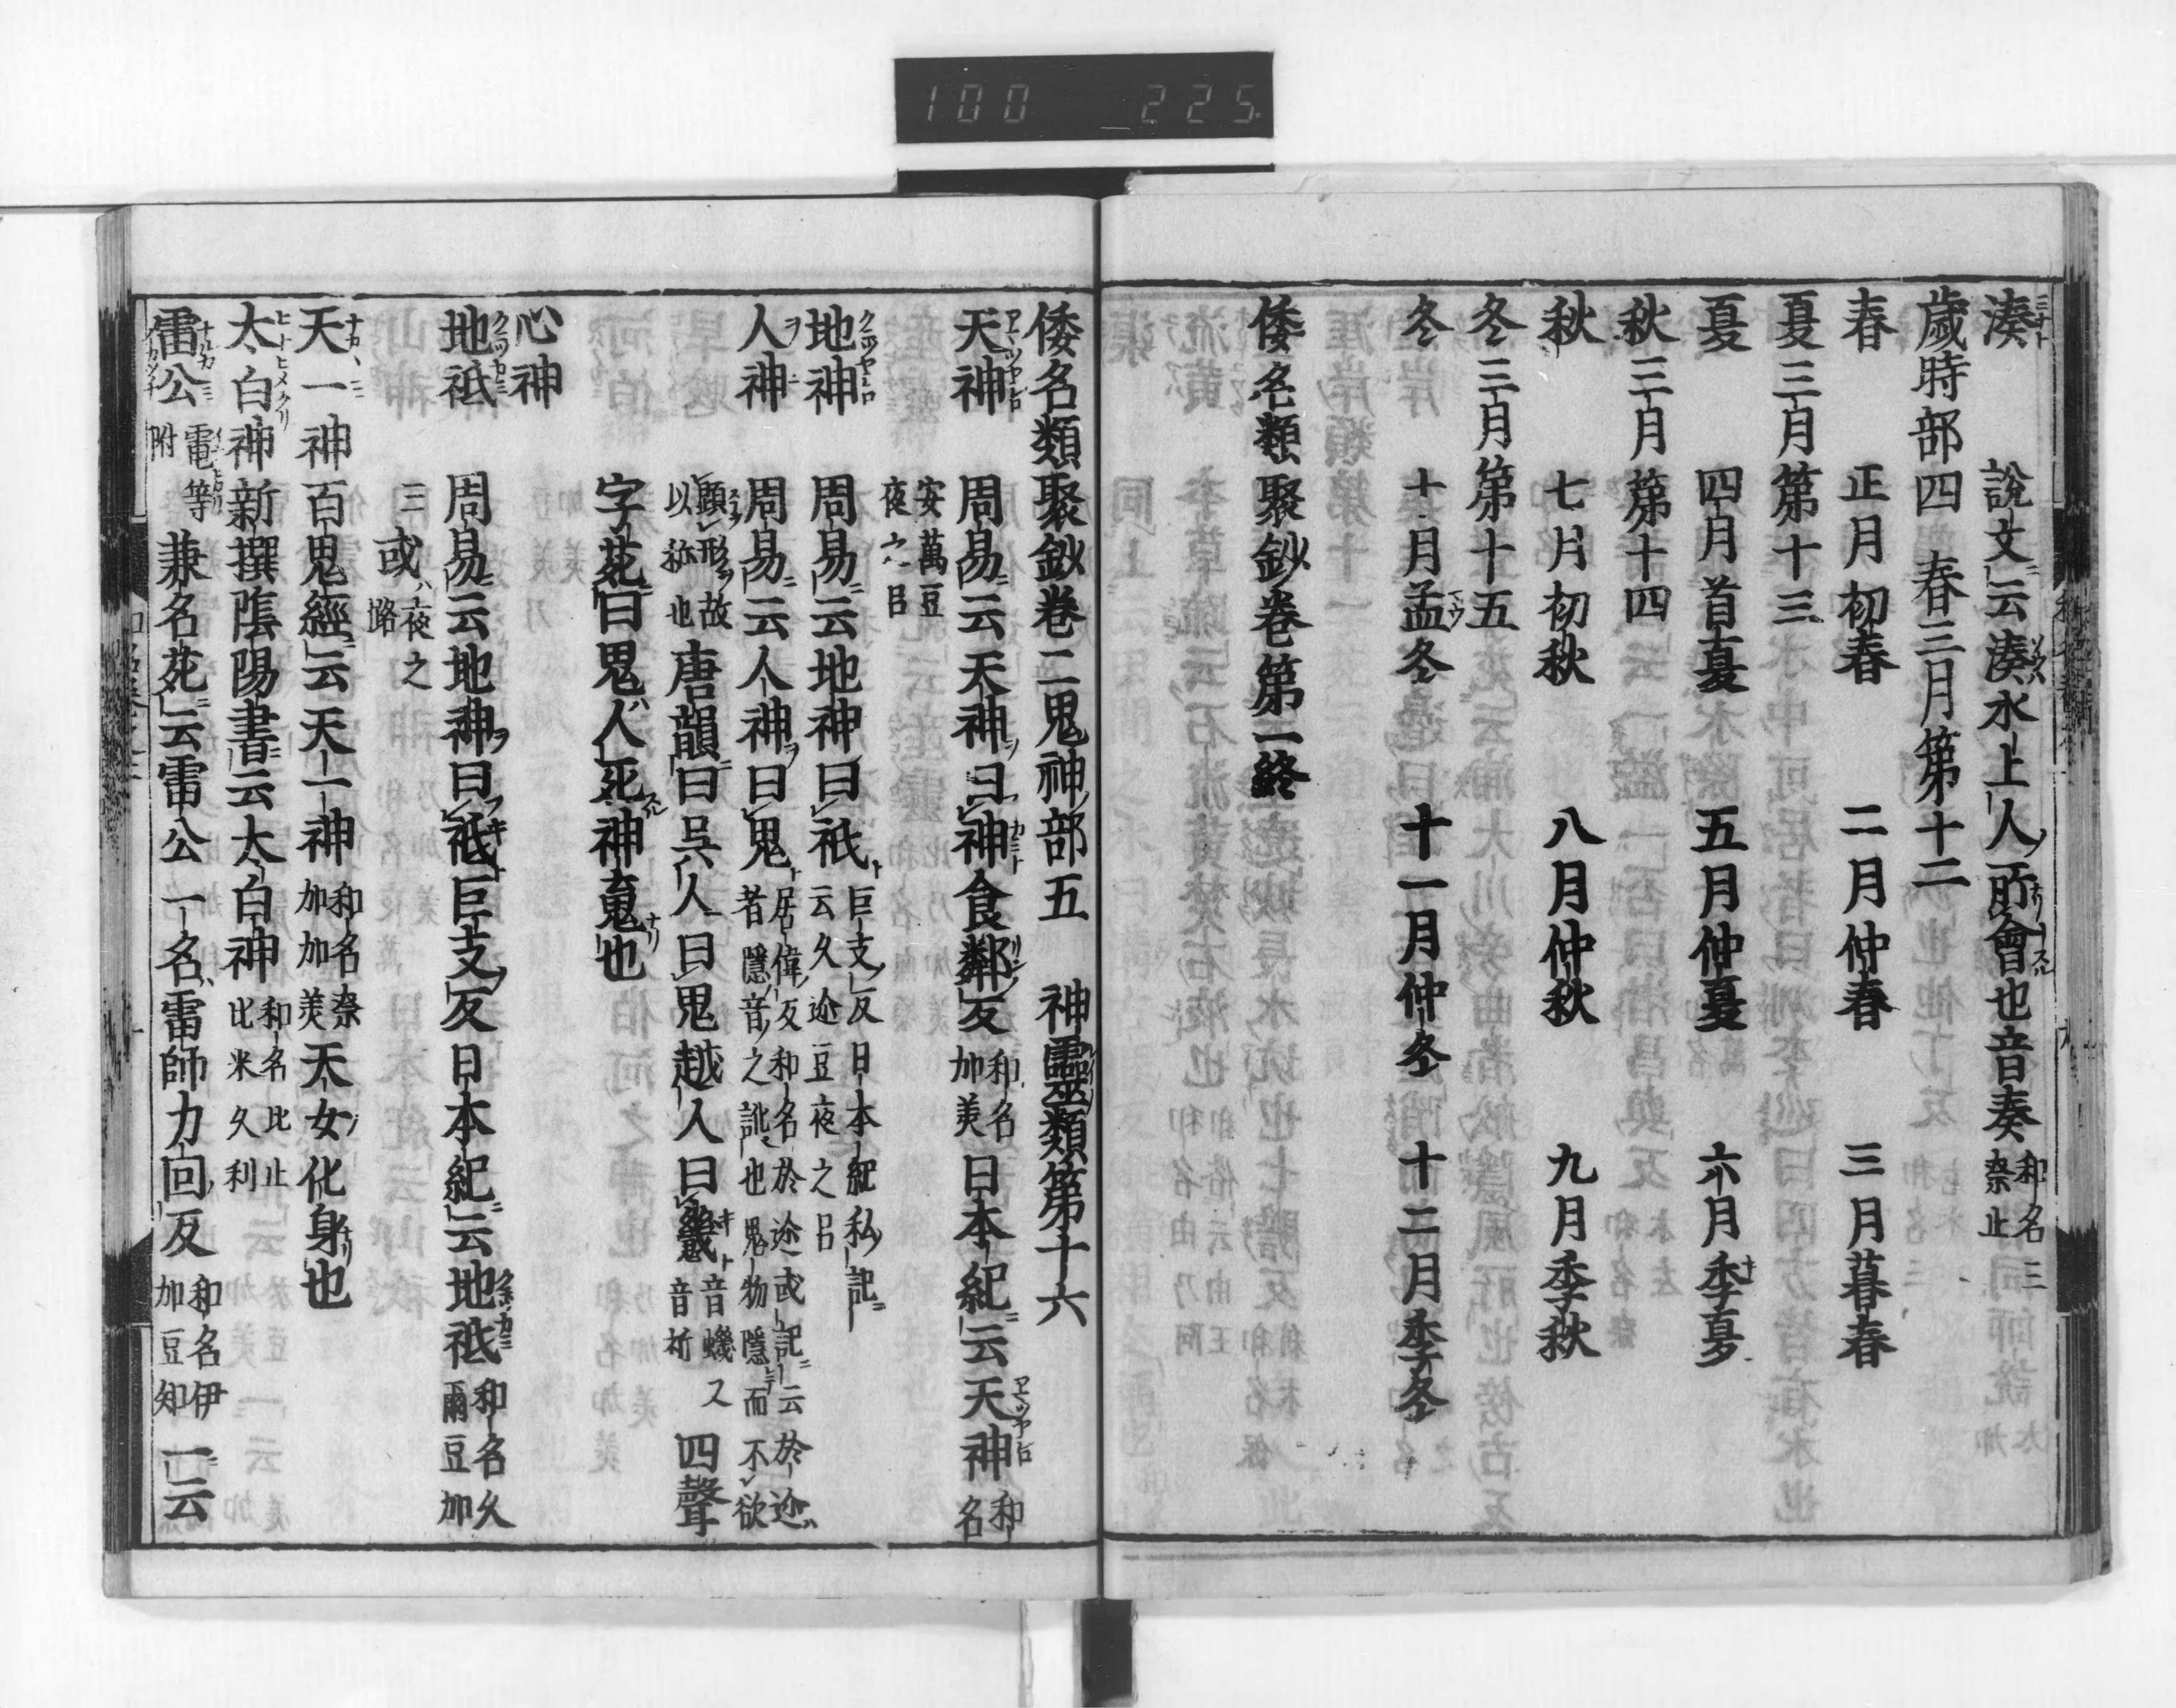 湊 說文云湊水上人所會也音奏 和名三奈止
歲時部四 春三月第十二
春 正月初春 二月仲春 三月暮春
夏三月第十三
夏 四月首夏 五月仲夏 六月季夏
秋三月第十四
秋 七月初秋 八月仲秋 九月季秋
冬三月第十五
冬 十月孟冬 十一月仲冬 十二月季冬
倭名類聚鈔卷第一終
倭名類聚鈔卷二鬼神部五 神靈類第十六
天神 周易云天神曰神食鄰反 和名加美 日本紀云天神 和名
安萬豆夜之呂
地神 周易云地神曰祇 巨支反日本紀私記云久迩豆夜之呂
人神 周易云人神曰鬼 居偉反和名於迩或記云於迩者隱音之訛也鬼物隱而不欲
顯形故以稱也 唐韻曰呉人曰鬼越人曰𩴆 音蟣又音祈 四聲
字苑曰鬼人死神䰟也
心神
地祇 周易云地神曰祇巨支反日本紀云地祇 和名久爾豆加
三 或夜之路
天一神 百鬼經云天一神 和名奈加加美 天女化身也
太白神 新撰陰陽書云太白神 和名比止比米久利
雷公 電等附 兼名苑云雷公一名雷師力回反 和名伊加豆知 一云
100 225